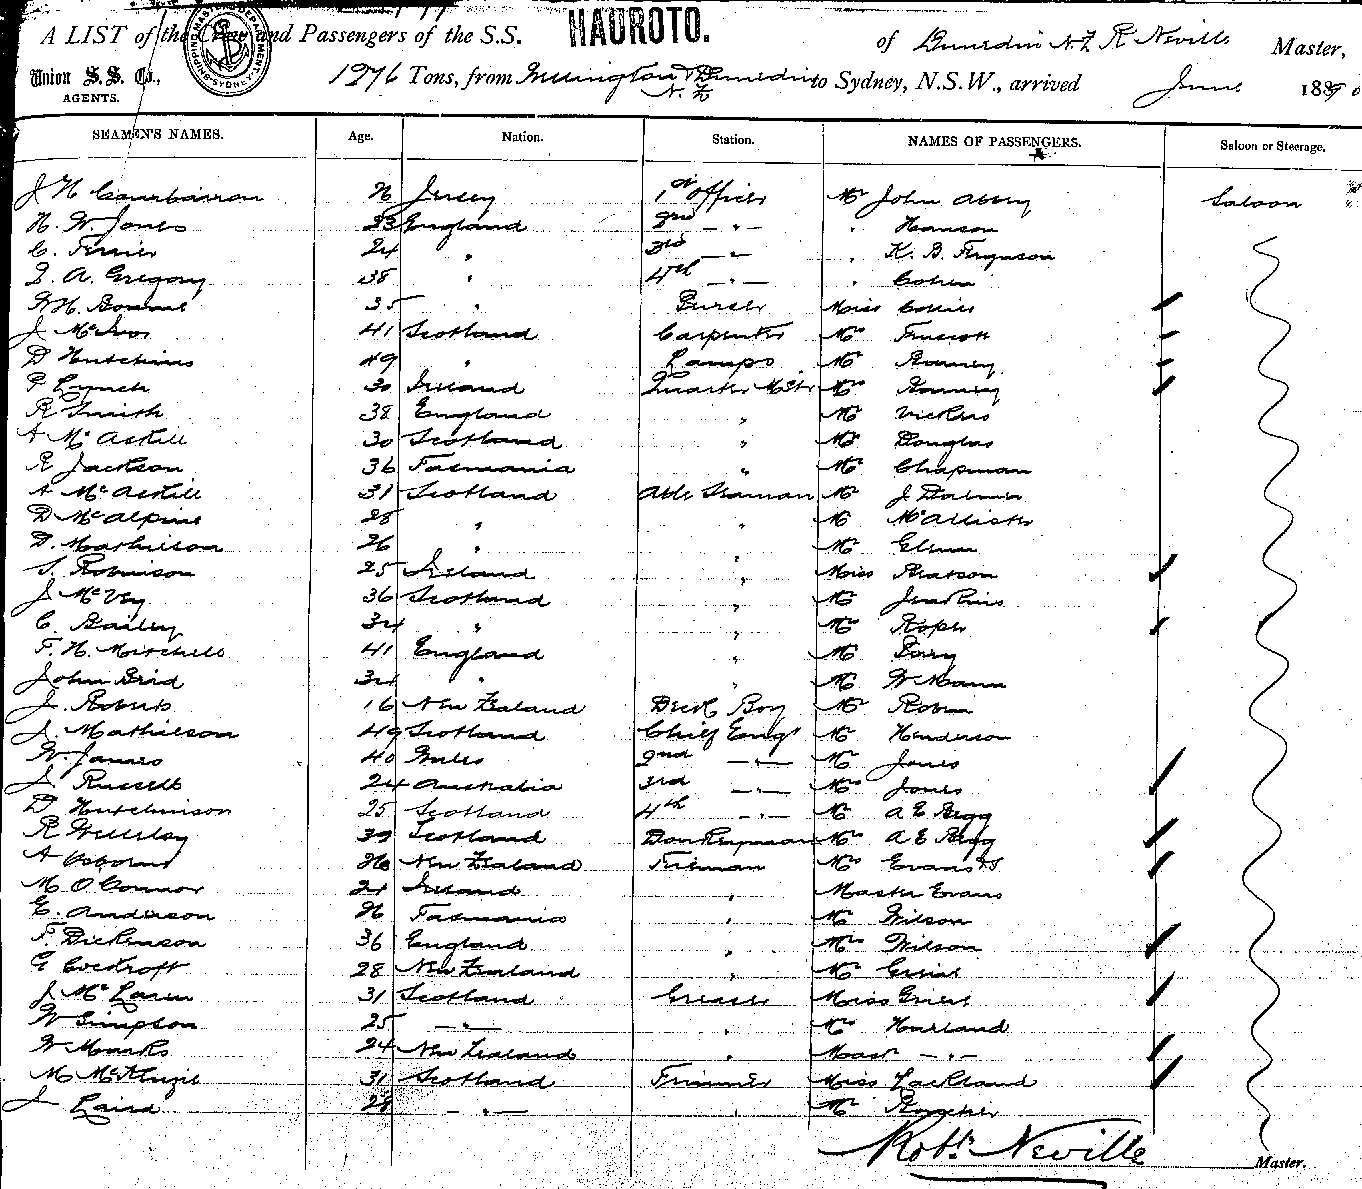 A LIST of the Crew and Passengers of the S.S. HAUROTO. of Dunedin N.Z R Neville Master,
Union S.S. Co., AGENTS. 1276 Tons, from Wellington & Dunedin N.Z to Sydney, N.S.W., arrived June 1890
SEAMEN'S NAMES. Age. Nation. Station. NAMES OF PASSENGERS. Saloon or Steerage.
J H 26 Jersey 1st Officer Mr John Saloon
H. W. Jones 23 England 2nd — " — " Hanson
C. Ferrier 24 " 3rd — " — " K. B. Ferguson
A. Gregory 38 " 4th — " — " Cohen
W H. 35 " Purser Miss
J 41 Scotland Carpenter
D Hutchins 49 " Lamps Mr
P Lynch 30 Ireland Quarter Mstr Mrs
R Smith 38 England " Mr Vickers
A McAskill 30 Scotland " Mr Douglas
R Jackson 36 Tasmania " Mr Chapman
A McAskill 31 Scotland Able Seaman Mr J
D McAlpine 28 " " Mr McAllister
D. Mathieson 26 " " Mr
S. Robinson 25 Ireland " Miss
J McVey 36 Scotland " Mr Jenkins
C Bailey 34 " " Mrs Roper
F. H. Mitchell 41 England " Mr
John 34 " " Mr W Mann
J. Roberts 16 New Zealand Deck Boy Mr
J. Mathieson 49 Scotland Chief Engr Mr Henderson
W. James 40 Wales 2nd — " — Mr Jones
J Russell 24 Australia 3rd — " — Mrs Jones
D Hutchinson 25 Scotland 4th — " — Mr A E Begg
R Wellesley 39 Scotland Donkeyman Mrs A E Begg
A Osborne 26 New Zealand Fireman Mrs Evans
M O'Connor 24 Ireland " Master Evans
E. Anderson 26 Tasmania " Mr Wilson
F. Dickenson 36 England " Mrs Wilson
G 28 New Zealand " Mr
J McLaren 31 Scotland Greaser Miss
W Simpson 25 — " — " Harland
W Marks 24 New Zealand " Mast — " —
M McKenzie 31 Scotland Trimmer Miss Lackland
J Laird 28 — " — " Mr
Robt. Neville
Master.